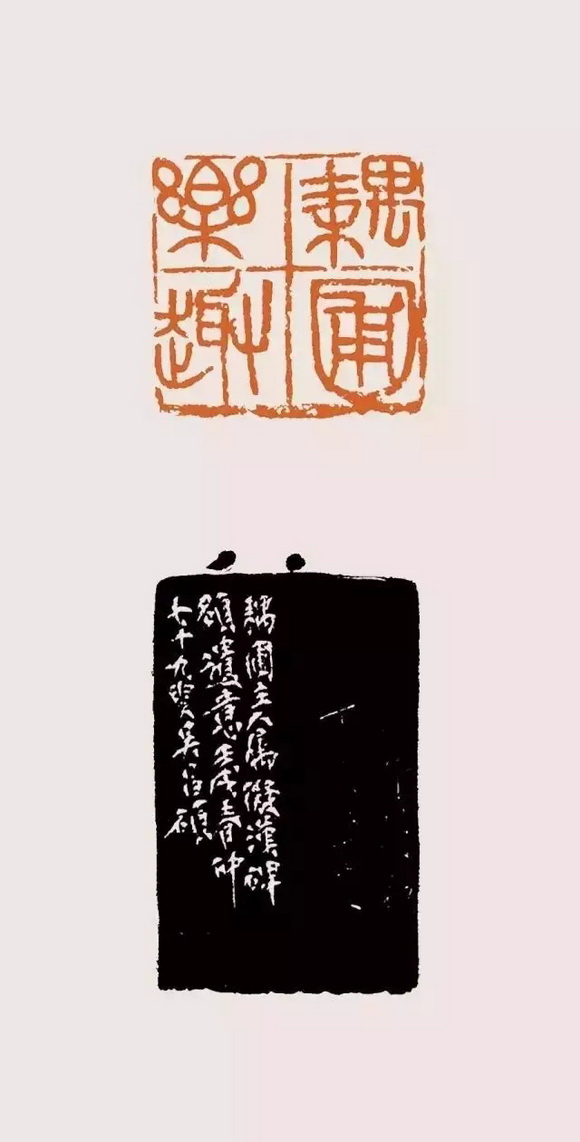 耦圃
樂趣
耦圃主人屬擬漢碑
額遺意壬戌春仲
七十九叟吳昌碩